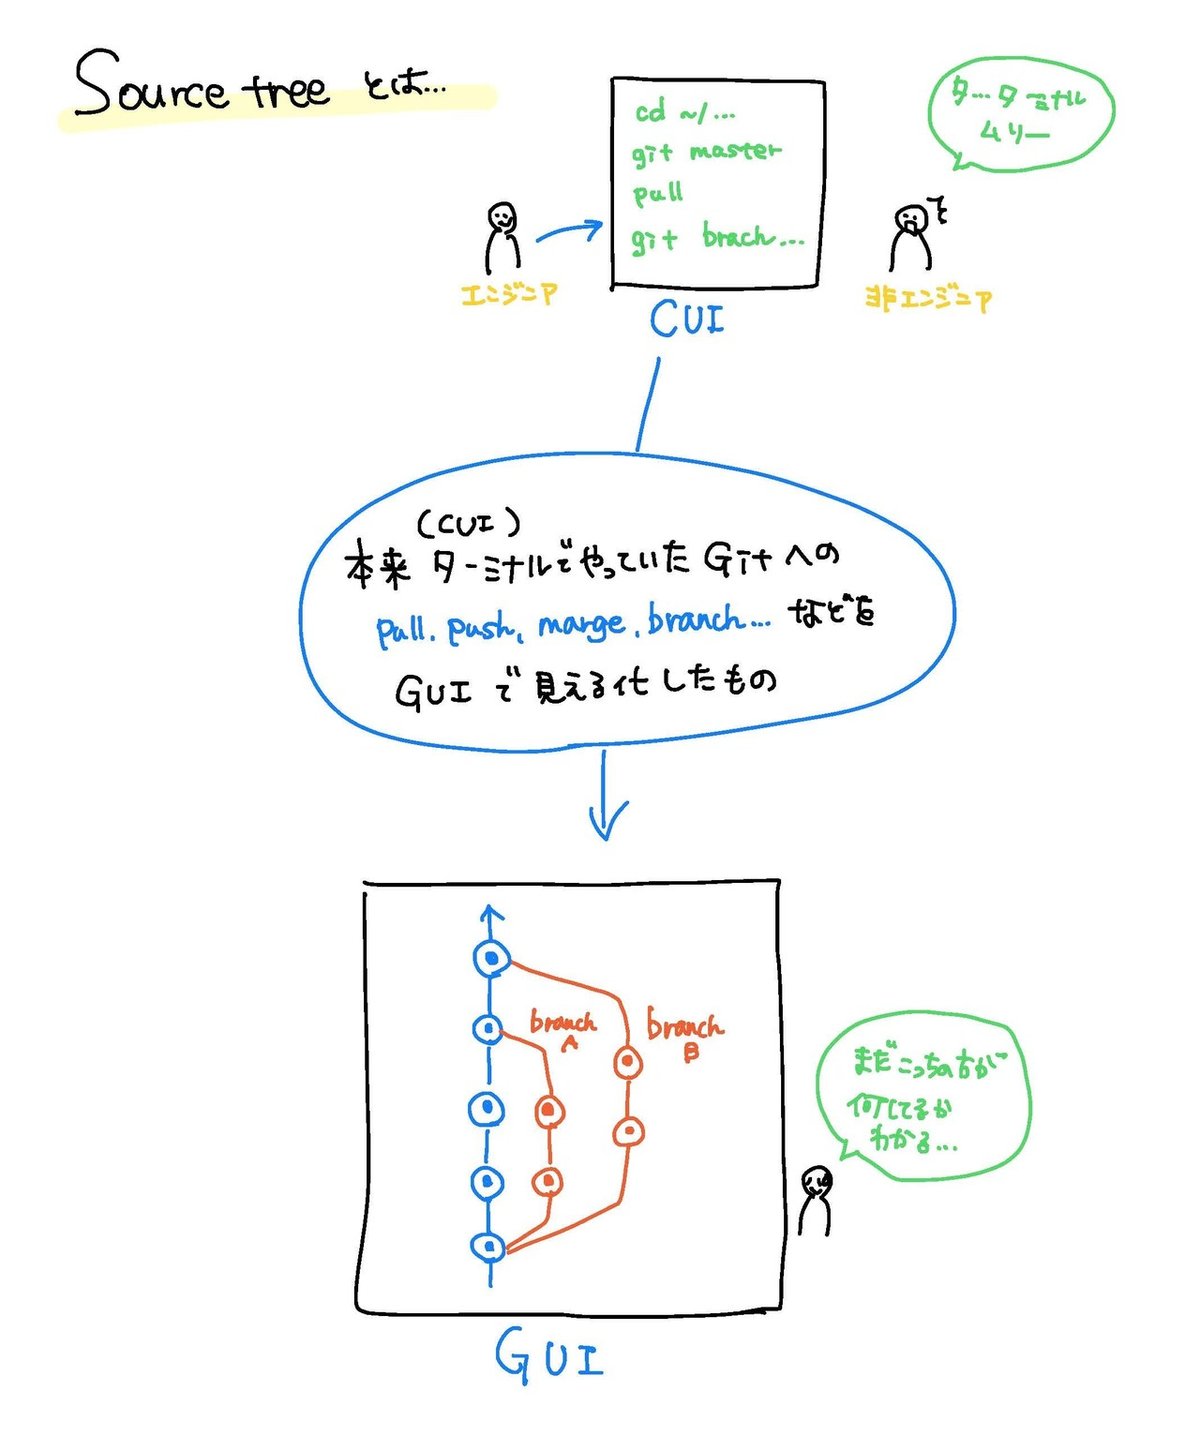 Source tree とは...
cd ~/...
git master
pull
git brach...
CUI
エンジニア
ター..ターミナル
ムリー
非エンジニア
(CUI)
本来 ターミナルでやっていた Gitへの
pull, push, marge, branch... などを
GUI で 見える化 したもの
branch
A
branch
B
まだこっちの方が
何してるか
わかる...
GUI